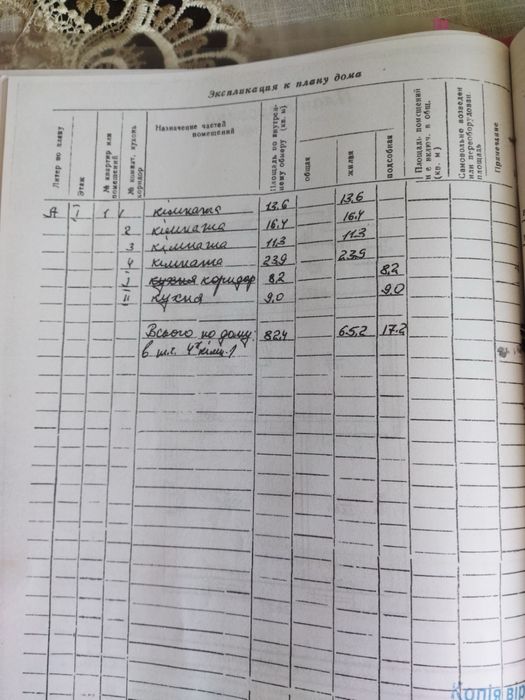 Экспликация к плану дома
Литер по плану
Этаж
№ квартир или помещения
№ комнат, кухонь коридор
Назначение частей помещений
Площадь по внутреннему обмеру (кв. м)
общая
жилая
подсобная
Площадь помещений не включ. в общ. (кв. м)
Самовольно возведен или переоборудован. площадь
Примечание
А I 1 1 кімната 13,6 13,6
2 кімната 16,4 16,4
3 кімната 11,3 11,3
4 кімната 23,9 23,9
I коридор 8,2 8,2
II кухня 9,0 9,0
Всього по дому: 82,4 65,2 17,2
в т.ч.
Копія вір